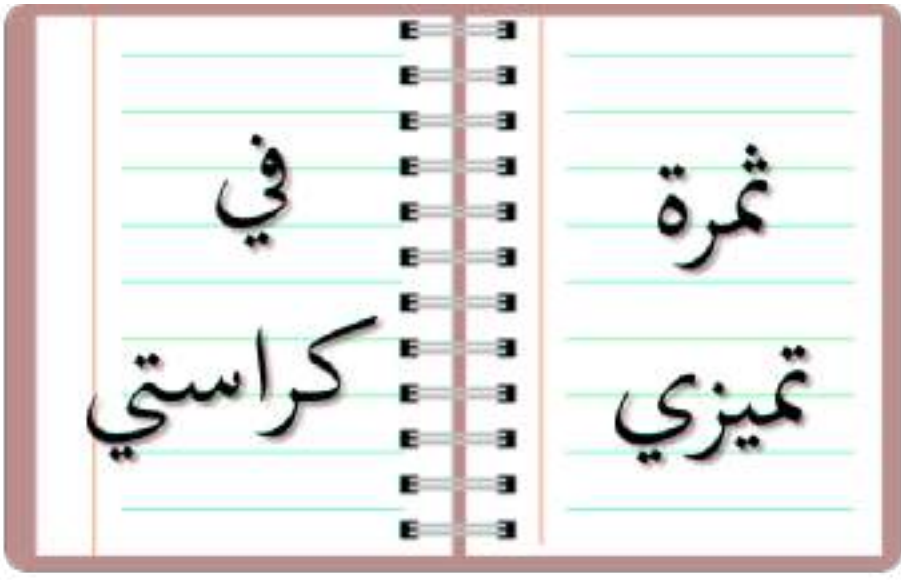 ثمرة
تميزي
في
كراستي